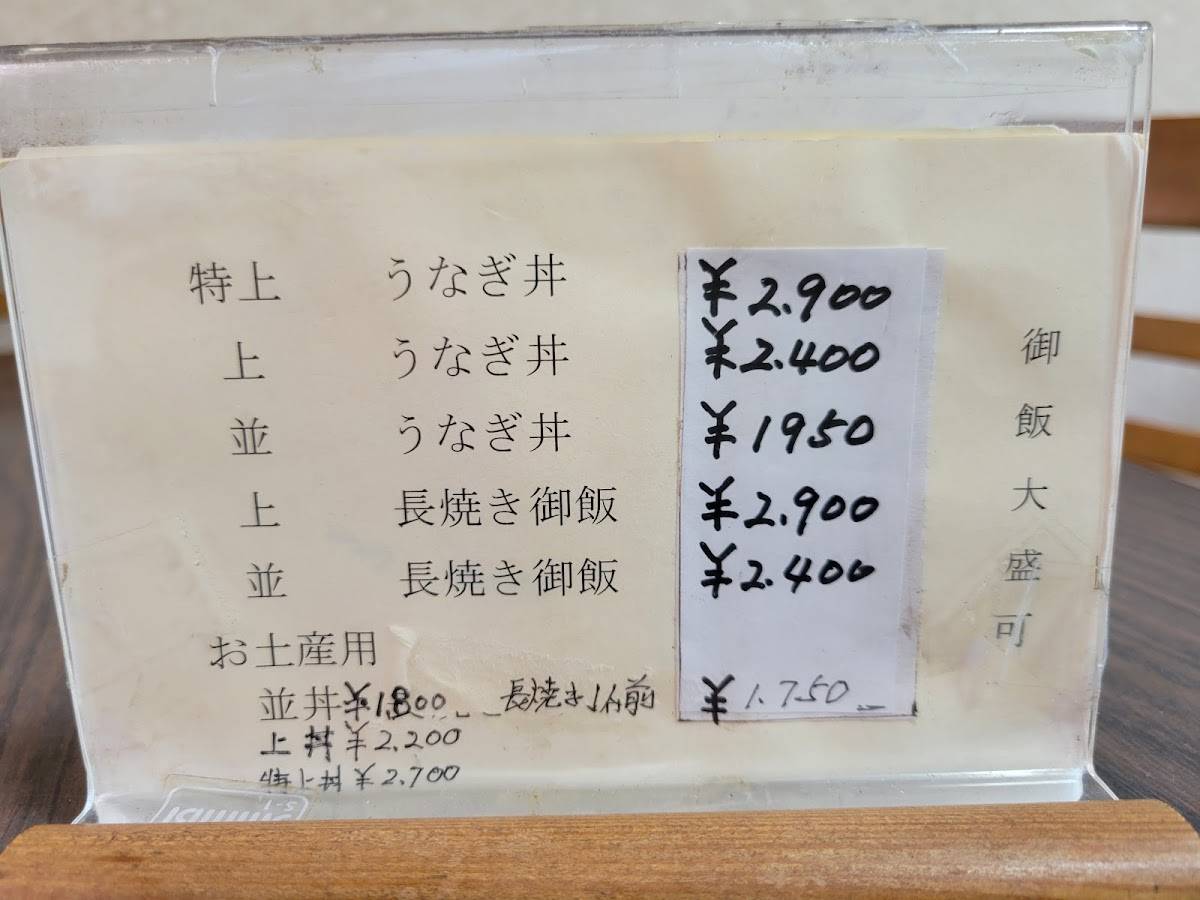 特上 うなぎ丼 ¥2.900
上 うなぎ丼 ¥2.400
並 うなぎ丼 ¥1950
上 長焼き御飯 ¥2.900
並 長焼き御飯 ¥2.400
お土産用
並丼 ¥1.800 長焼き1人前 ¥1.750
上丼 ¥2.200
特上丼 ¥2.700
御飯大盛可